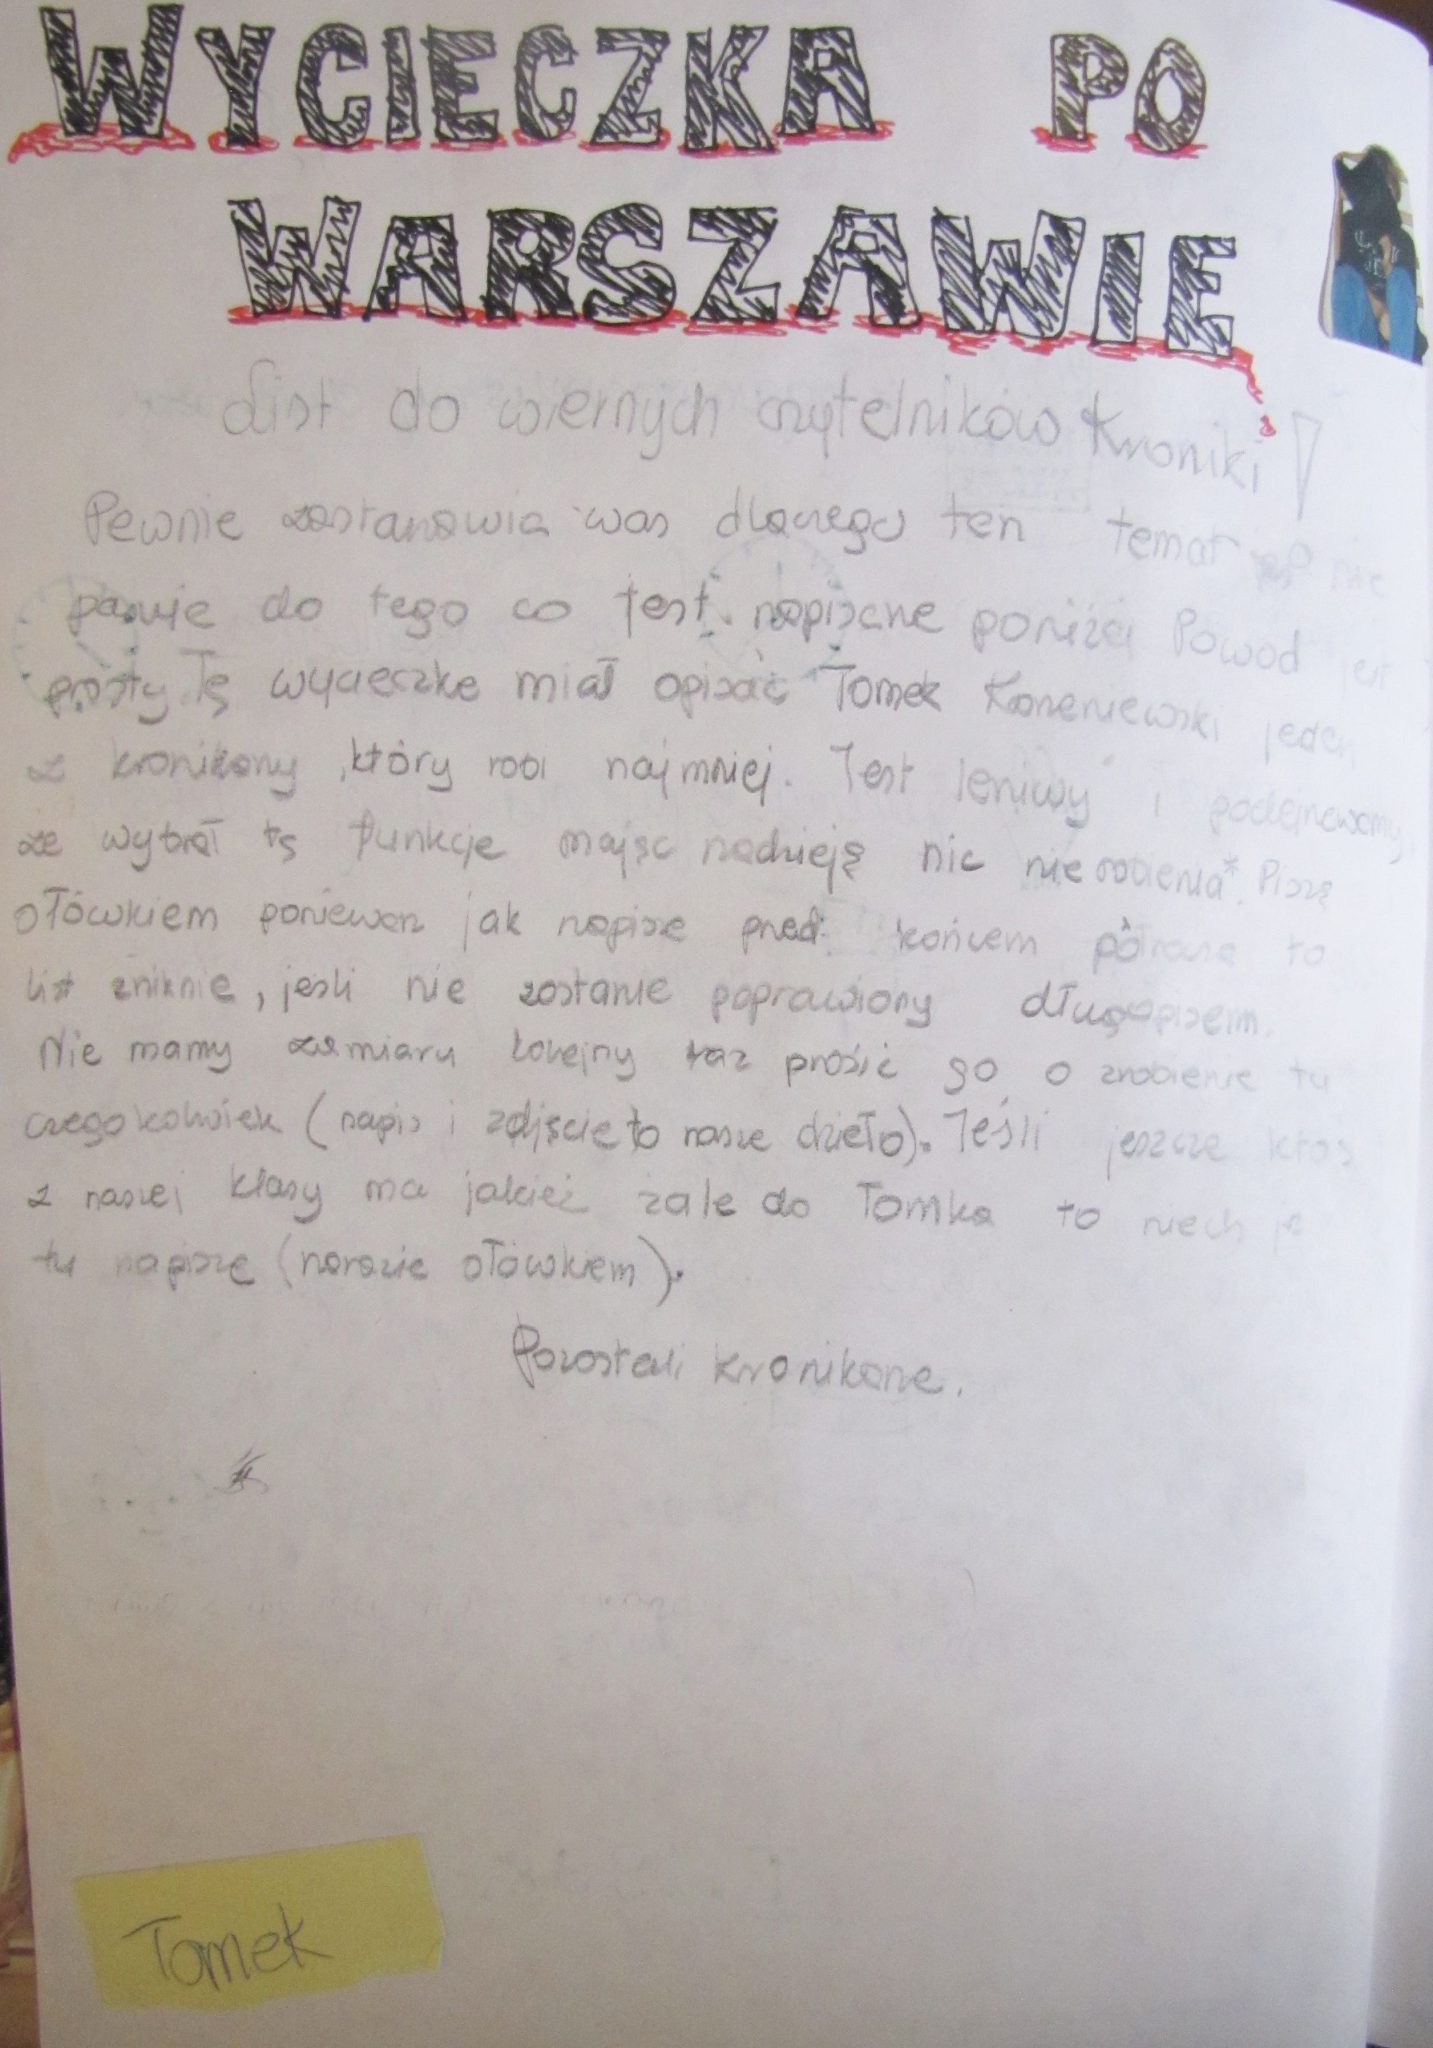 WYCIECZKA PO
WARSZAWIE
List do wiernych czytelników Kroniki!
Pewnie zastanowia was dlaczego ten temat nie
pasuje do tego co jest napisane poniżej Powód jest
prosty. Tę wycieczke miał opisać Tomek jeden
z kronikarzy, który robi najmniej. Jest leniwy i podejrzewamy,
że wybrał tę funkcje mając nadzieję nic nie robienia*. Piszę
ołówkiem ponieważ jak napisze przed końcem półrocza to
list zniknie, jeśli nie zostanie poprawiony długopisem.
Nie mamy zamiaru kolejny raz prosić go o zrobienie tu
czegokolwiek (napis i zdjęcie to nasze dzieło). Jeśli jeszcze ktoś
z naszej klasy ma jakieś żale do Tomka to niech je
tu napisze (narazie ołówkiem).
Pozostali kronikarze.
Tomek